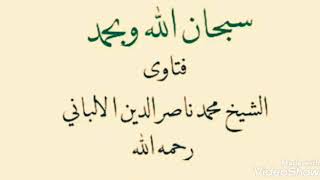 سبحان الله وبحمد
فتاوى
الشيخ محمد ناصر الدين الالباني
رحمه الله
Made with
VideoShow